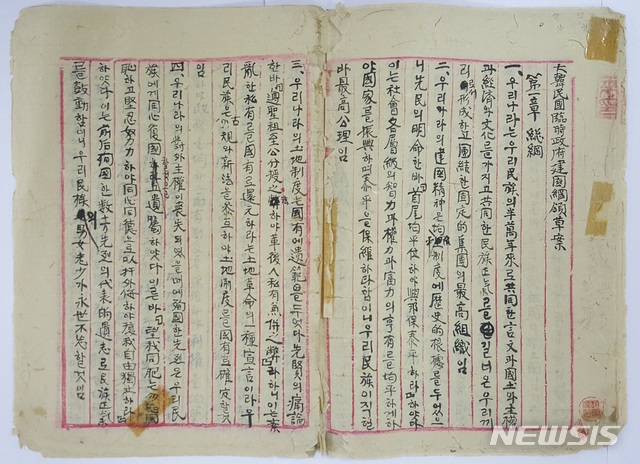 大韓民國臨時政府建國綱領草案
第章 總綱
一、우리나라는우리民族의半萬年來로共同한言文과國土와主權
과經濟와文化를가지고共同한民族正氣를길너온우리끼
리形成하고團結한固定的集團의最高組織임
二、우리나라의建國精神은三均制度에歷史的根據를두엇으
니先民의明命한바「首尾均平位하야興邦保泰平하리라」하야
이는社會各層級의智力과權力과富力의享有를均平하게하
야國家를振興하며泰平을保維하라함이니우리民族이지킬
바最高公理임
三、우리나라의土地制度는國有에遺範을두엇다先賢의痛論
한바「遵聖祖至公分授之法하야革後人私有兼倂之弊」라하니이는紊
亂한私有를國有로還元하라는土地革命의一種宣言이라우
리民族은古規와新法을參互하야土地制度를國有로確定할것
임
四、우리나라의對外主權이喪失되엿을때에殉國한先烈은우리民
族에게同心復國을遺囑하엿다이른바「望我同胞는勿忘國
恥하고堅忍努力하야同心同德으로以扞外侮하야復我自由獨立하라」
하엿다이는前后殉國한數十萬先烈의代表的遺志로民族正氣
를鼓動함이니우리民族의男女老少가永世不忘할것임
NEWSIS